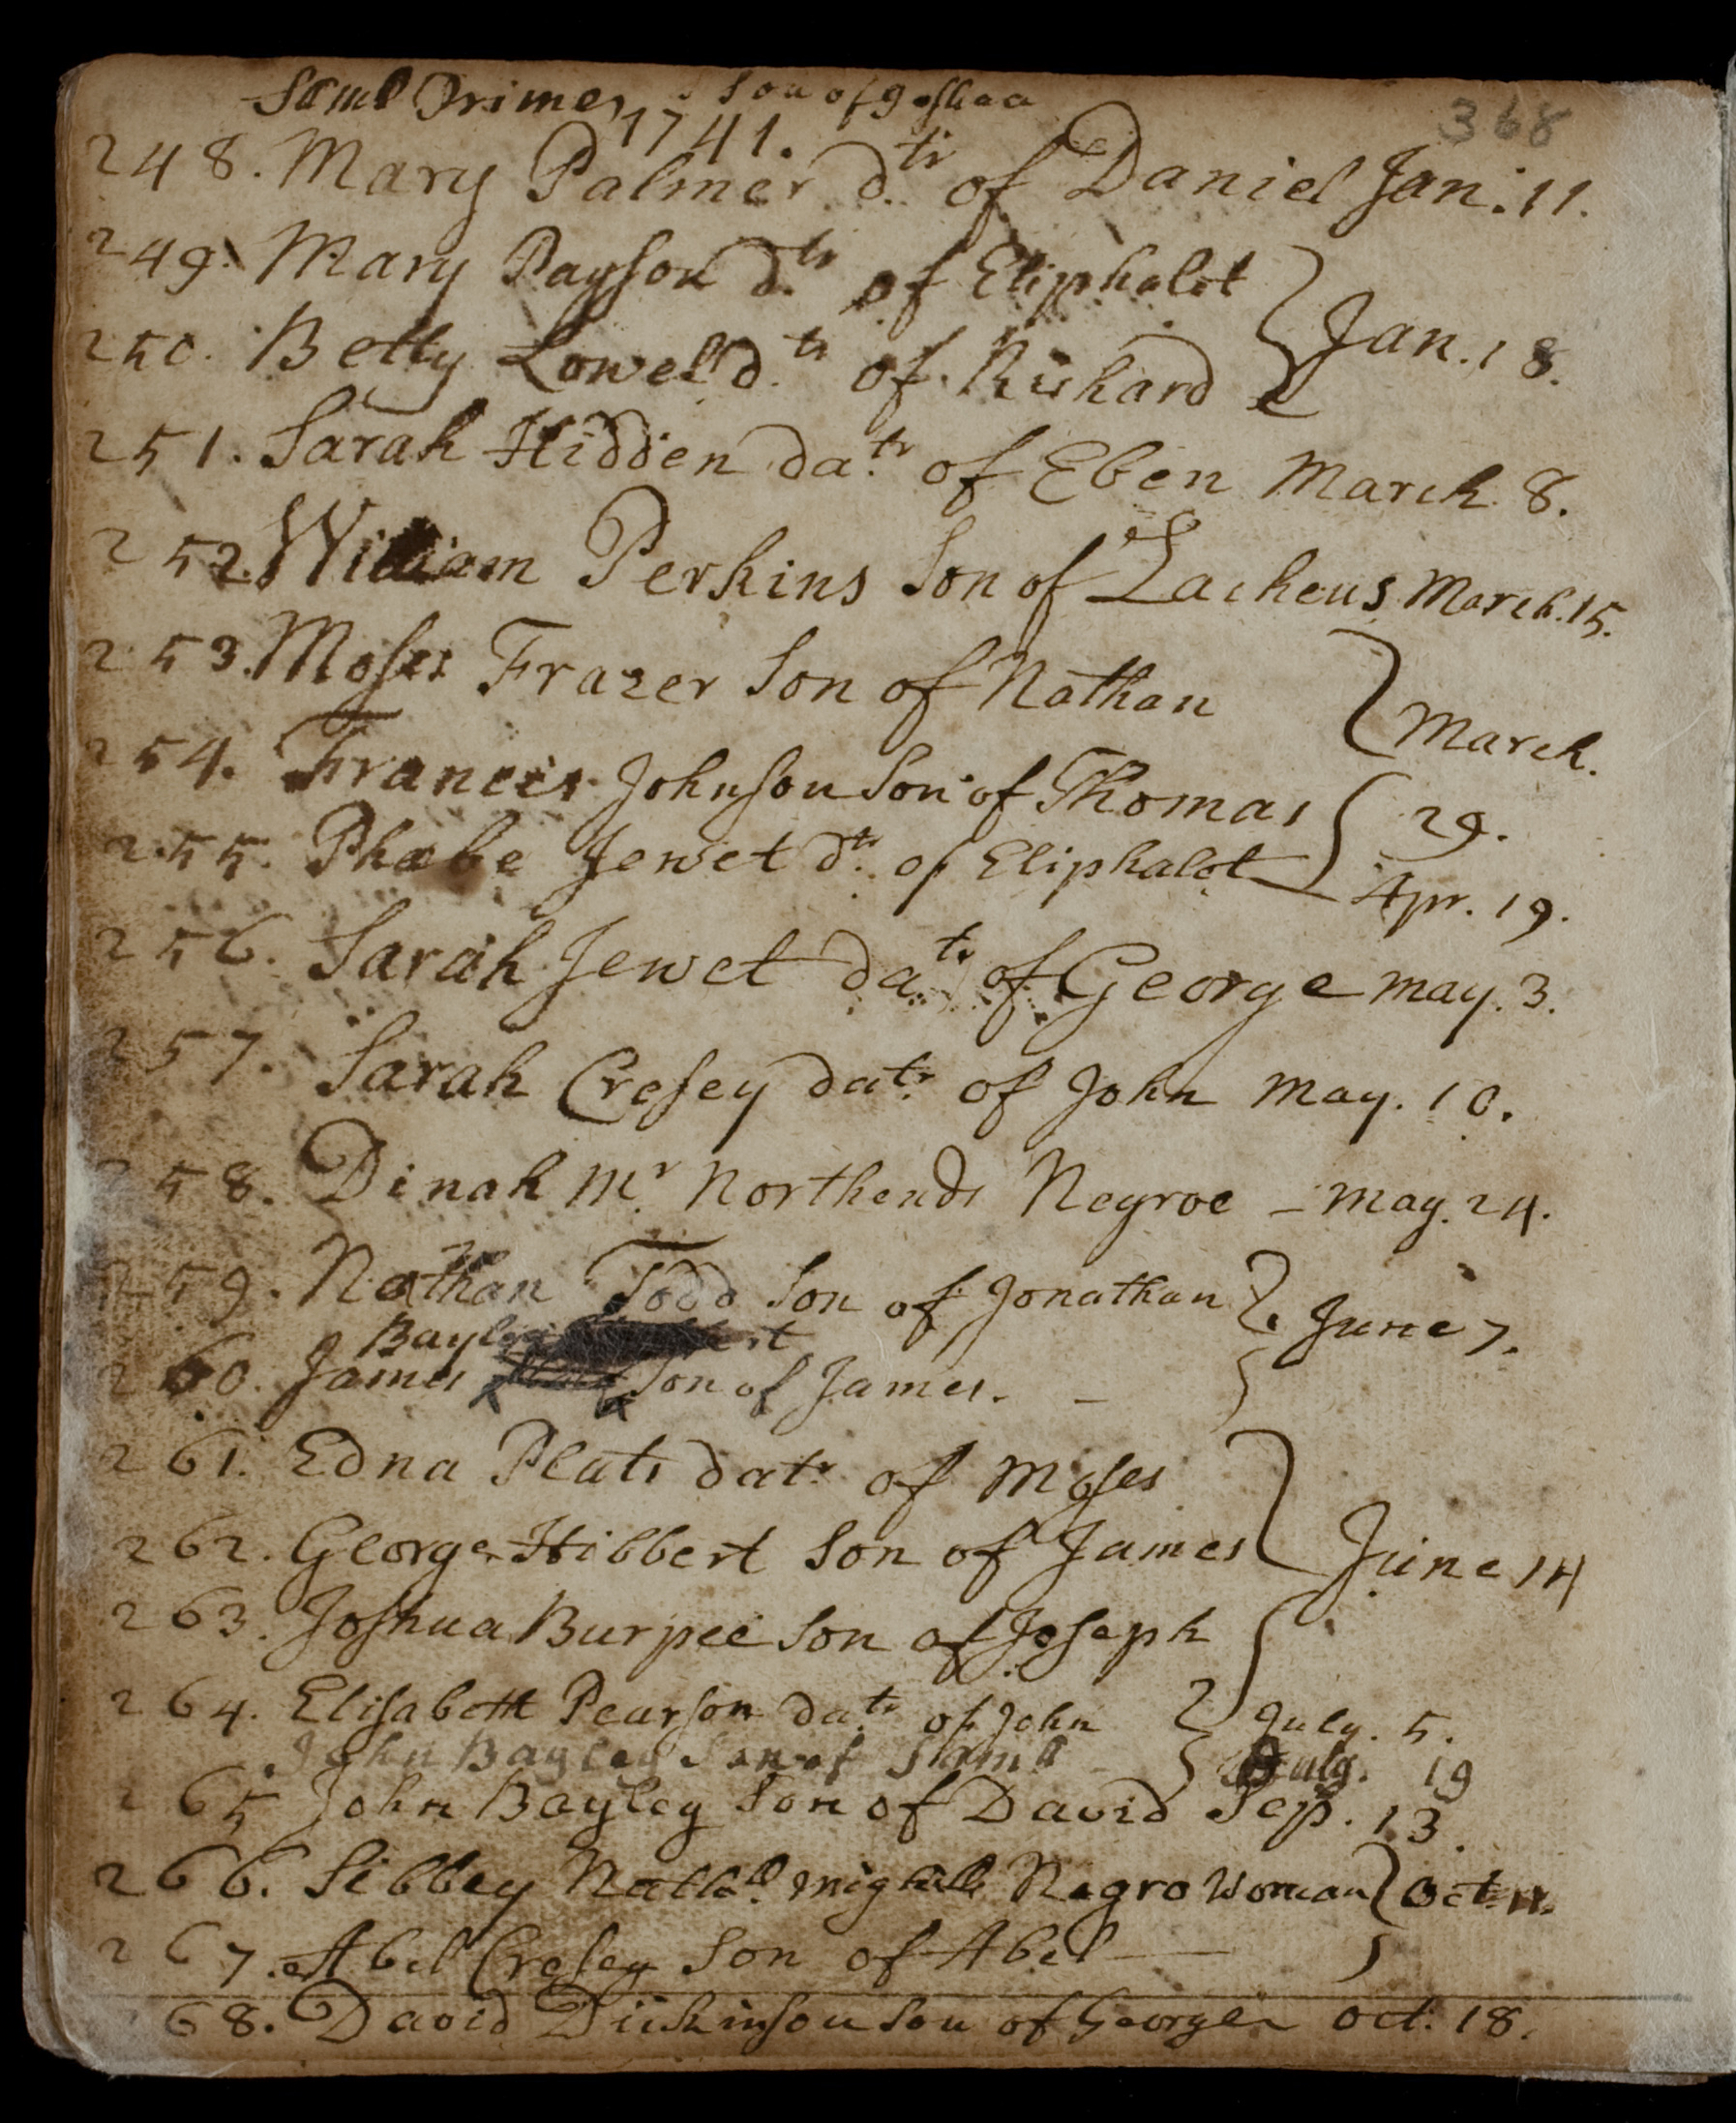 Saml Prime, son of Joshua
368
1741.
248. Mary Palmer d.tr of Daniel Jan: 11.
249. Mary Payson d.tr of Eliphalet
250. Betty Lowel d.tr of Richard } Jan. 18.
251. Sarah Hidden da.tr of Eben March 8.
252. William Perkins Son of Zacheus March. 15.
253. Moses Frazer Son of Nathan } March.
254. Francis Johnson Son of Thomas 29.
255. Phæbe Jewet d.tr of Eliphalet Apr. 19.
256. Sarah Jewet da.tr of George may. 3.
257. Sarah Cresey datr. of John May. 10.
258. Dinah Mr. Northends Negroe - may. 24.
259. Nathan Todd Son of Jonathan } June 7.
Bayley
260. James Son of James. -
261. Edna Plats datr. of Moses
262. George Hibbert Son of James } June 14
263. Joshua Burpee Son of Joseph
264. Elisabeth Pearson da.tr of John } July. 5.
John Bayley Son of Saml July. 19
265 John Bayley Son of David Sep. 13.
266. Sibbey Nathll. mighills Negro Woman } Oct. 11.
267. Abel Cresey Son of Abel
68. David Dickinson Son of George Oct. 18.